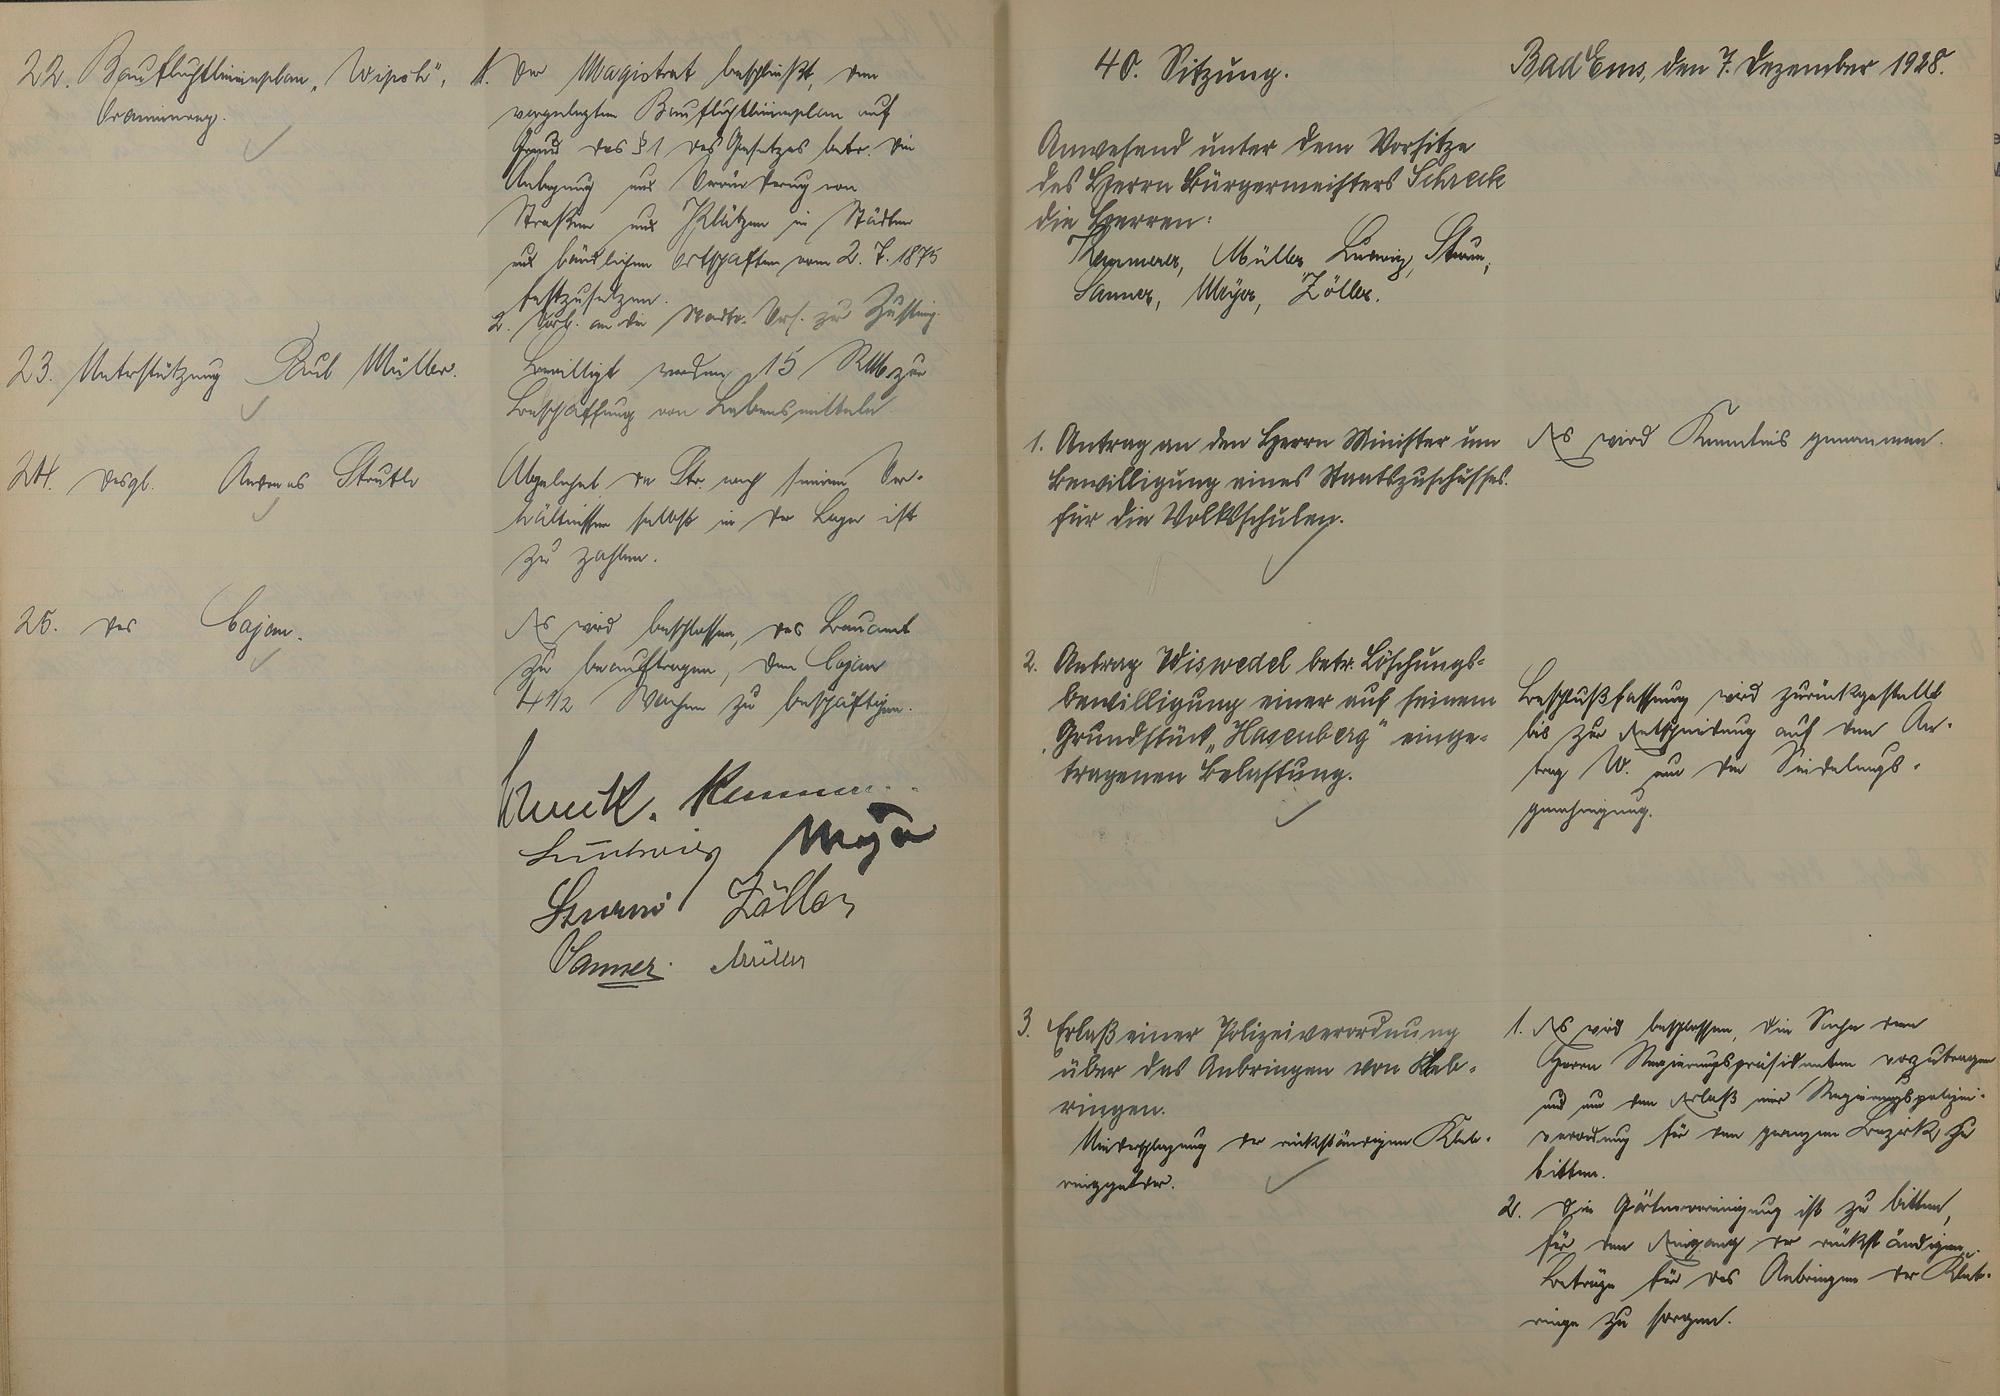 22. Baufluchtlinienplan „Wipsch“,
Oranienweg.
1. Der Magistrat beschließt, den
vorgelegten Baufluchtlinienplan auf
Grund des § 1 des Gesetzes betr. die
Anlegung und Veränderung von
Straßen und Plätzen in Städten
und ländlichen Ortschaften vom 2.7.1875
festzusetzen.
2. Vorl. an die Stadtv. Vers. zur Zustimg.
23. Unterstützung Paul Müller.
Bewilligt werden 15 RM zur
Beschaffung von Lebensmitteln.
24. desgl. Andreas Strutt
Abgelehnt, da Str. nach seinen Ver-
hältnissen selbst in der Lage ist
zu zahlen.
25. des Cajan.
Es wird beschlossen, das Bauamt
zu beauftragen, den Cajan
4 1/2 Wochen zu beschäftigen.
Schreck. Kemmer
Ludwig Meyer
Sturm Zöller
Sanner. Müller
40. Sitzung.
Bad Ems, den 7. Dezember 1928.
Anwesend unter dem Vorsitze
des Herrn Bürgermeisters Schreck
die Herren:
Kemmerer, Müller, Ludwig, Sturm,
Sanner, Meyer, Zöller.
1. Antrag an den Herrn Minister um
Bewilligung eines Staatszuschusses
für die Volksschulen.
Es wird Kenntnis genommen.
2. Antrag Wiswedel betr. Löschungs-
bewilligung einer auf seinem
Grundstück „Hasenberg“ einge-
tragenen Belastung.
Beschlußfassung wird zurückgestellt
bis zur Entscheidung auf den An-
trag W. um die Siedelungs-
genehmigung.
3. Erlaß einer Polizeiverordnung
über das Anbringen von Kleb-
ringen.
Niederschlagung der rückständigen Kleb-
ringgelder.
1. Es wird beschlossen, die Sache dem
Herrn Regierungspräsidenten vorzutragen
und um den Erlaß einer Regierungspolizei-
verordnung für den ganzen Bezirk zu
bitten.
2. Die Gärtnervereinigung ist zu bitten,
für den Eingang der rückständigen
Beträge für das Anbringen der Kleb-
ringe zu sorgen.